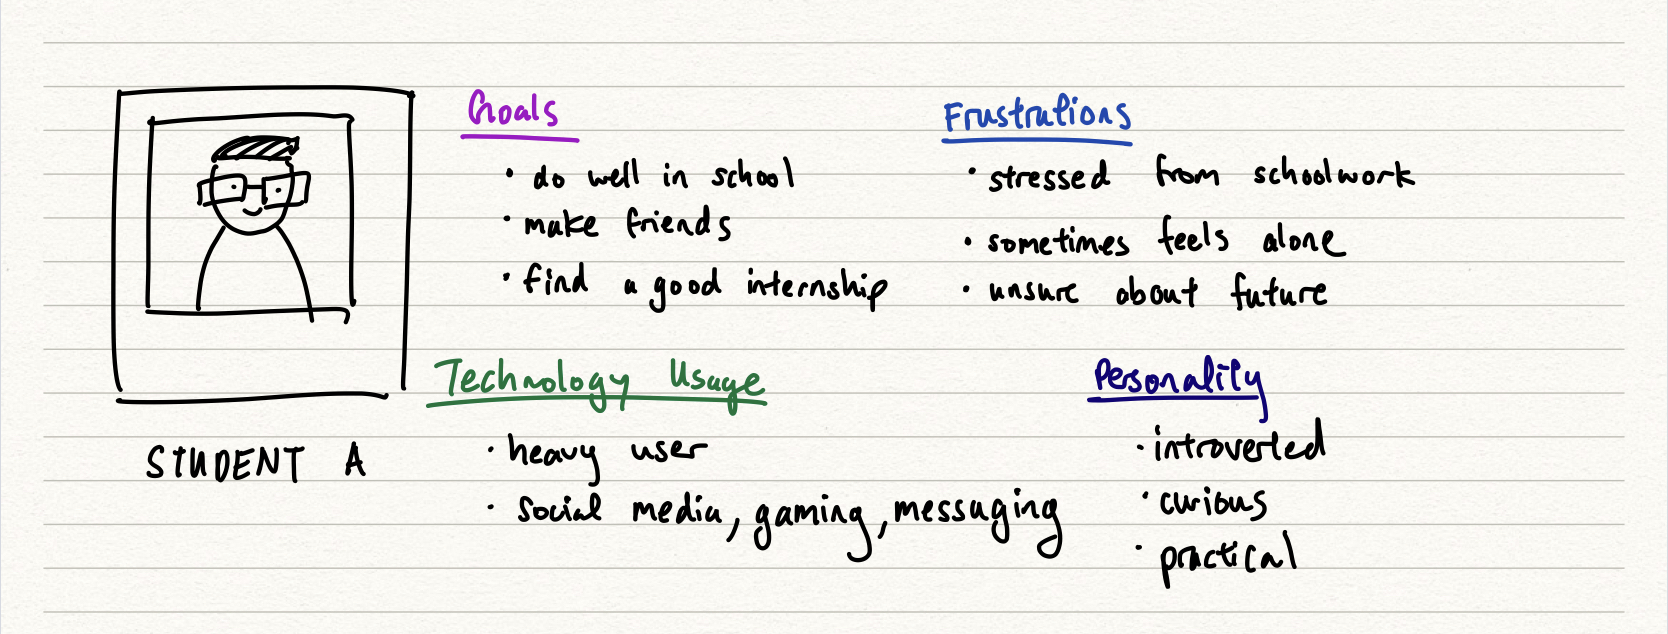 Goals
• do well in school
• make friends
• find a good internship
Frustrations
• stressed from schoolwork
• sometimes feels alone
• unsure about future
Technology Usage
• heavy user
• social media, gaming, messaging
Personality
• introverted
• curious
• practical
STUDENT A